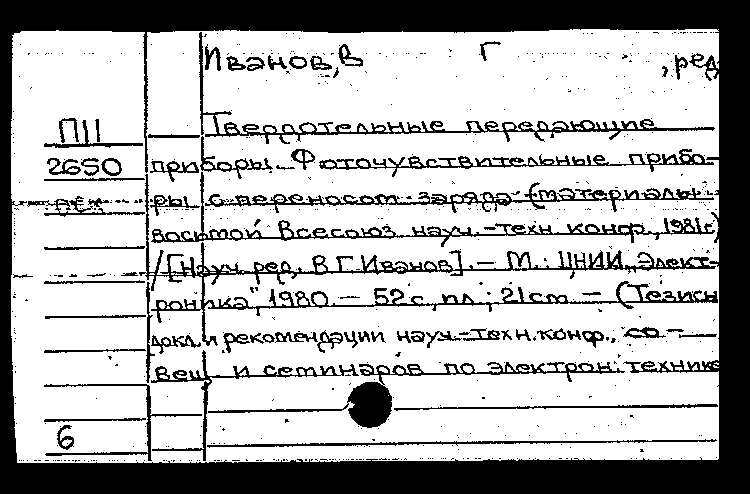 Иванов, В Г , ред.
П11 Твердотельные передающие
2650 приборы. Фоточувствительные прибо-
ры с переносом заряда (материалы
восьмой Всесоюз науч.-техн конф., 1981г)
/[Науч. ред. В Г Иванов]. – М.: ЦНИИ „Элект-
роника", 1980. – 52 с, ил.; 21 cm. – (Тезисы
докл. и рекомендации науч.-техн. конф., со-
вещ. и семинаров по электрон. технике
6